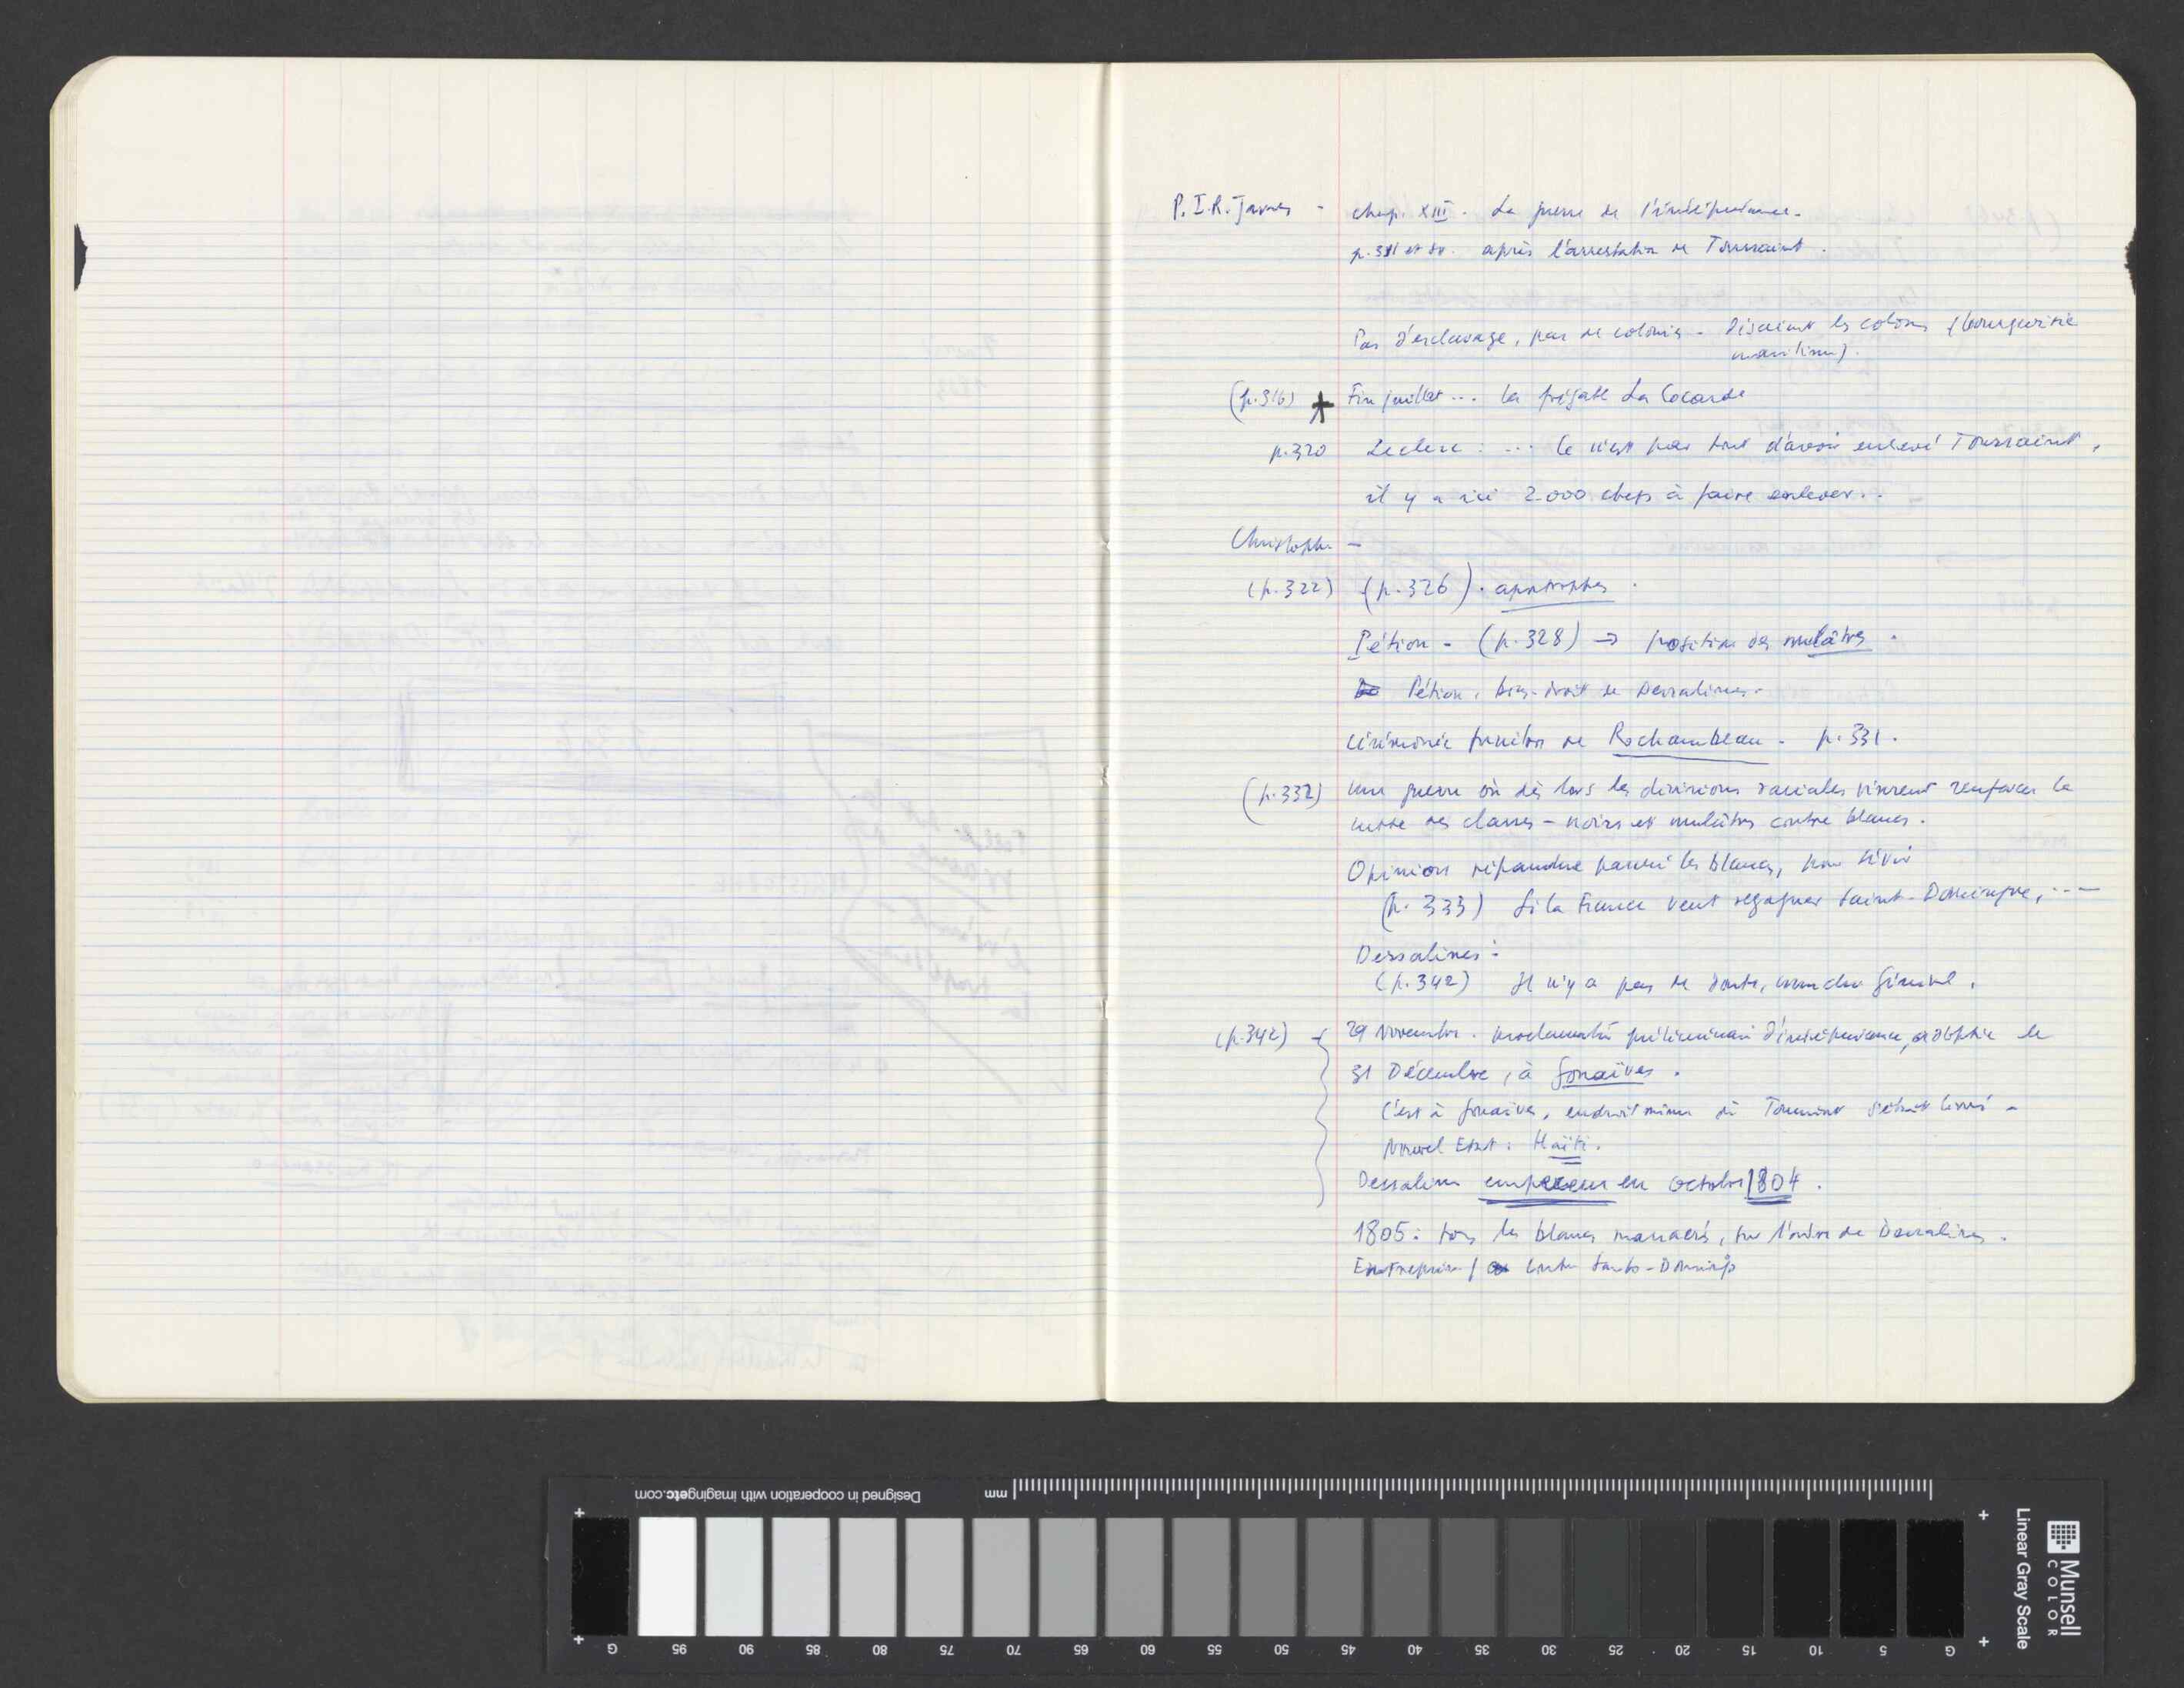 P.I.R. James - chap. XIII. La guerre de l'indépendance.
p.311 et sv. après l'arrestation de Toussaint.
Pas d'esclavage, pas de colonie - Disaient les colons (bourgeoisie
maritime).
(p.316) * Fin juillet ... la frégate La Cocarde
p.320 Leclerc : ... Ce n'est pas tout d'avoir enlevé Toussaint,
il y a ici 2.000 chefs à faire enlever..
Christophe -
(p.322) (p.326). apostrophes.
Pétion - (p.328) → position des mulâtres.
Pétion, bras-droit de Dessalines.
Cérémonie funèbre de Rochambeau - p.331.
(p.332) Une guerre où dès lors les divisions raciales vinrent renforcer la
lutte des classes - noirs et mulâtres contre blancs.
Opinion répandue parmi les blancs,
(p.333) Si la France veut regagner Saint-Domingue, ...
Dessalines :
(p.342) Il n'y a pas de doute, mon cher Général.
(p.342) - 29 Novembre. proclamation préliminaire d'indépendance, adoptée le
31 Décembre, à Gonaïves.
C'est à Gonaïves, endroit même où Toussaint s'était livré -
Nouvel Etat : Haïti.
Dessalines empereur en octobre 1804.
1805 : tous les blancs massacrés, sur l'ordre de Dessalines.
Entreprise contre Santo-Domingo
Designed in cooperation with imagingetc.com
mm
G 95 90 85 80 75 70 65 60 55 50 45 40 35 30 25 20 15 10 5 G
Munsell
COLOR
Linear Gray Scale